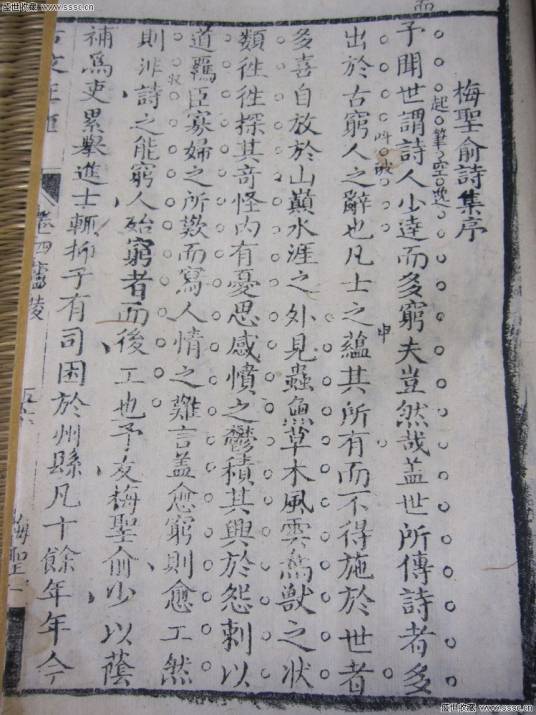 盛世收藏 www.sssc.cn
梅聖俞詩集序
予聞世謂詩人少達而多窮夫豈然哉盖世所傳詩者多
出於古窮人之辭也凡士之蘊其所有而不得施於世者
申
多喜自放於山巔水涯之外見蟲魚草木風雲鳥獸之狀
類徃徃探其奇怪內有憂思感憤之鬱積其興於怨刺以
道羈臣寡婦之所歎而寫人情之難言盖愈窮則愈工然
收
則非詩之能窮人殆窮者而後工也予友梅聖俞少以蔭
補為吏累舉進士輒抑于有司困於州縣凡十餘年年今
卷四廬陵
梅聖
盛世收藏 www.sssc.cn